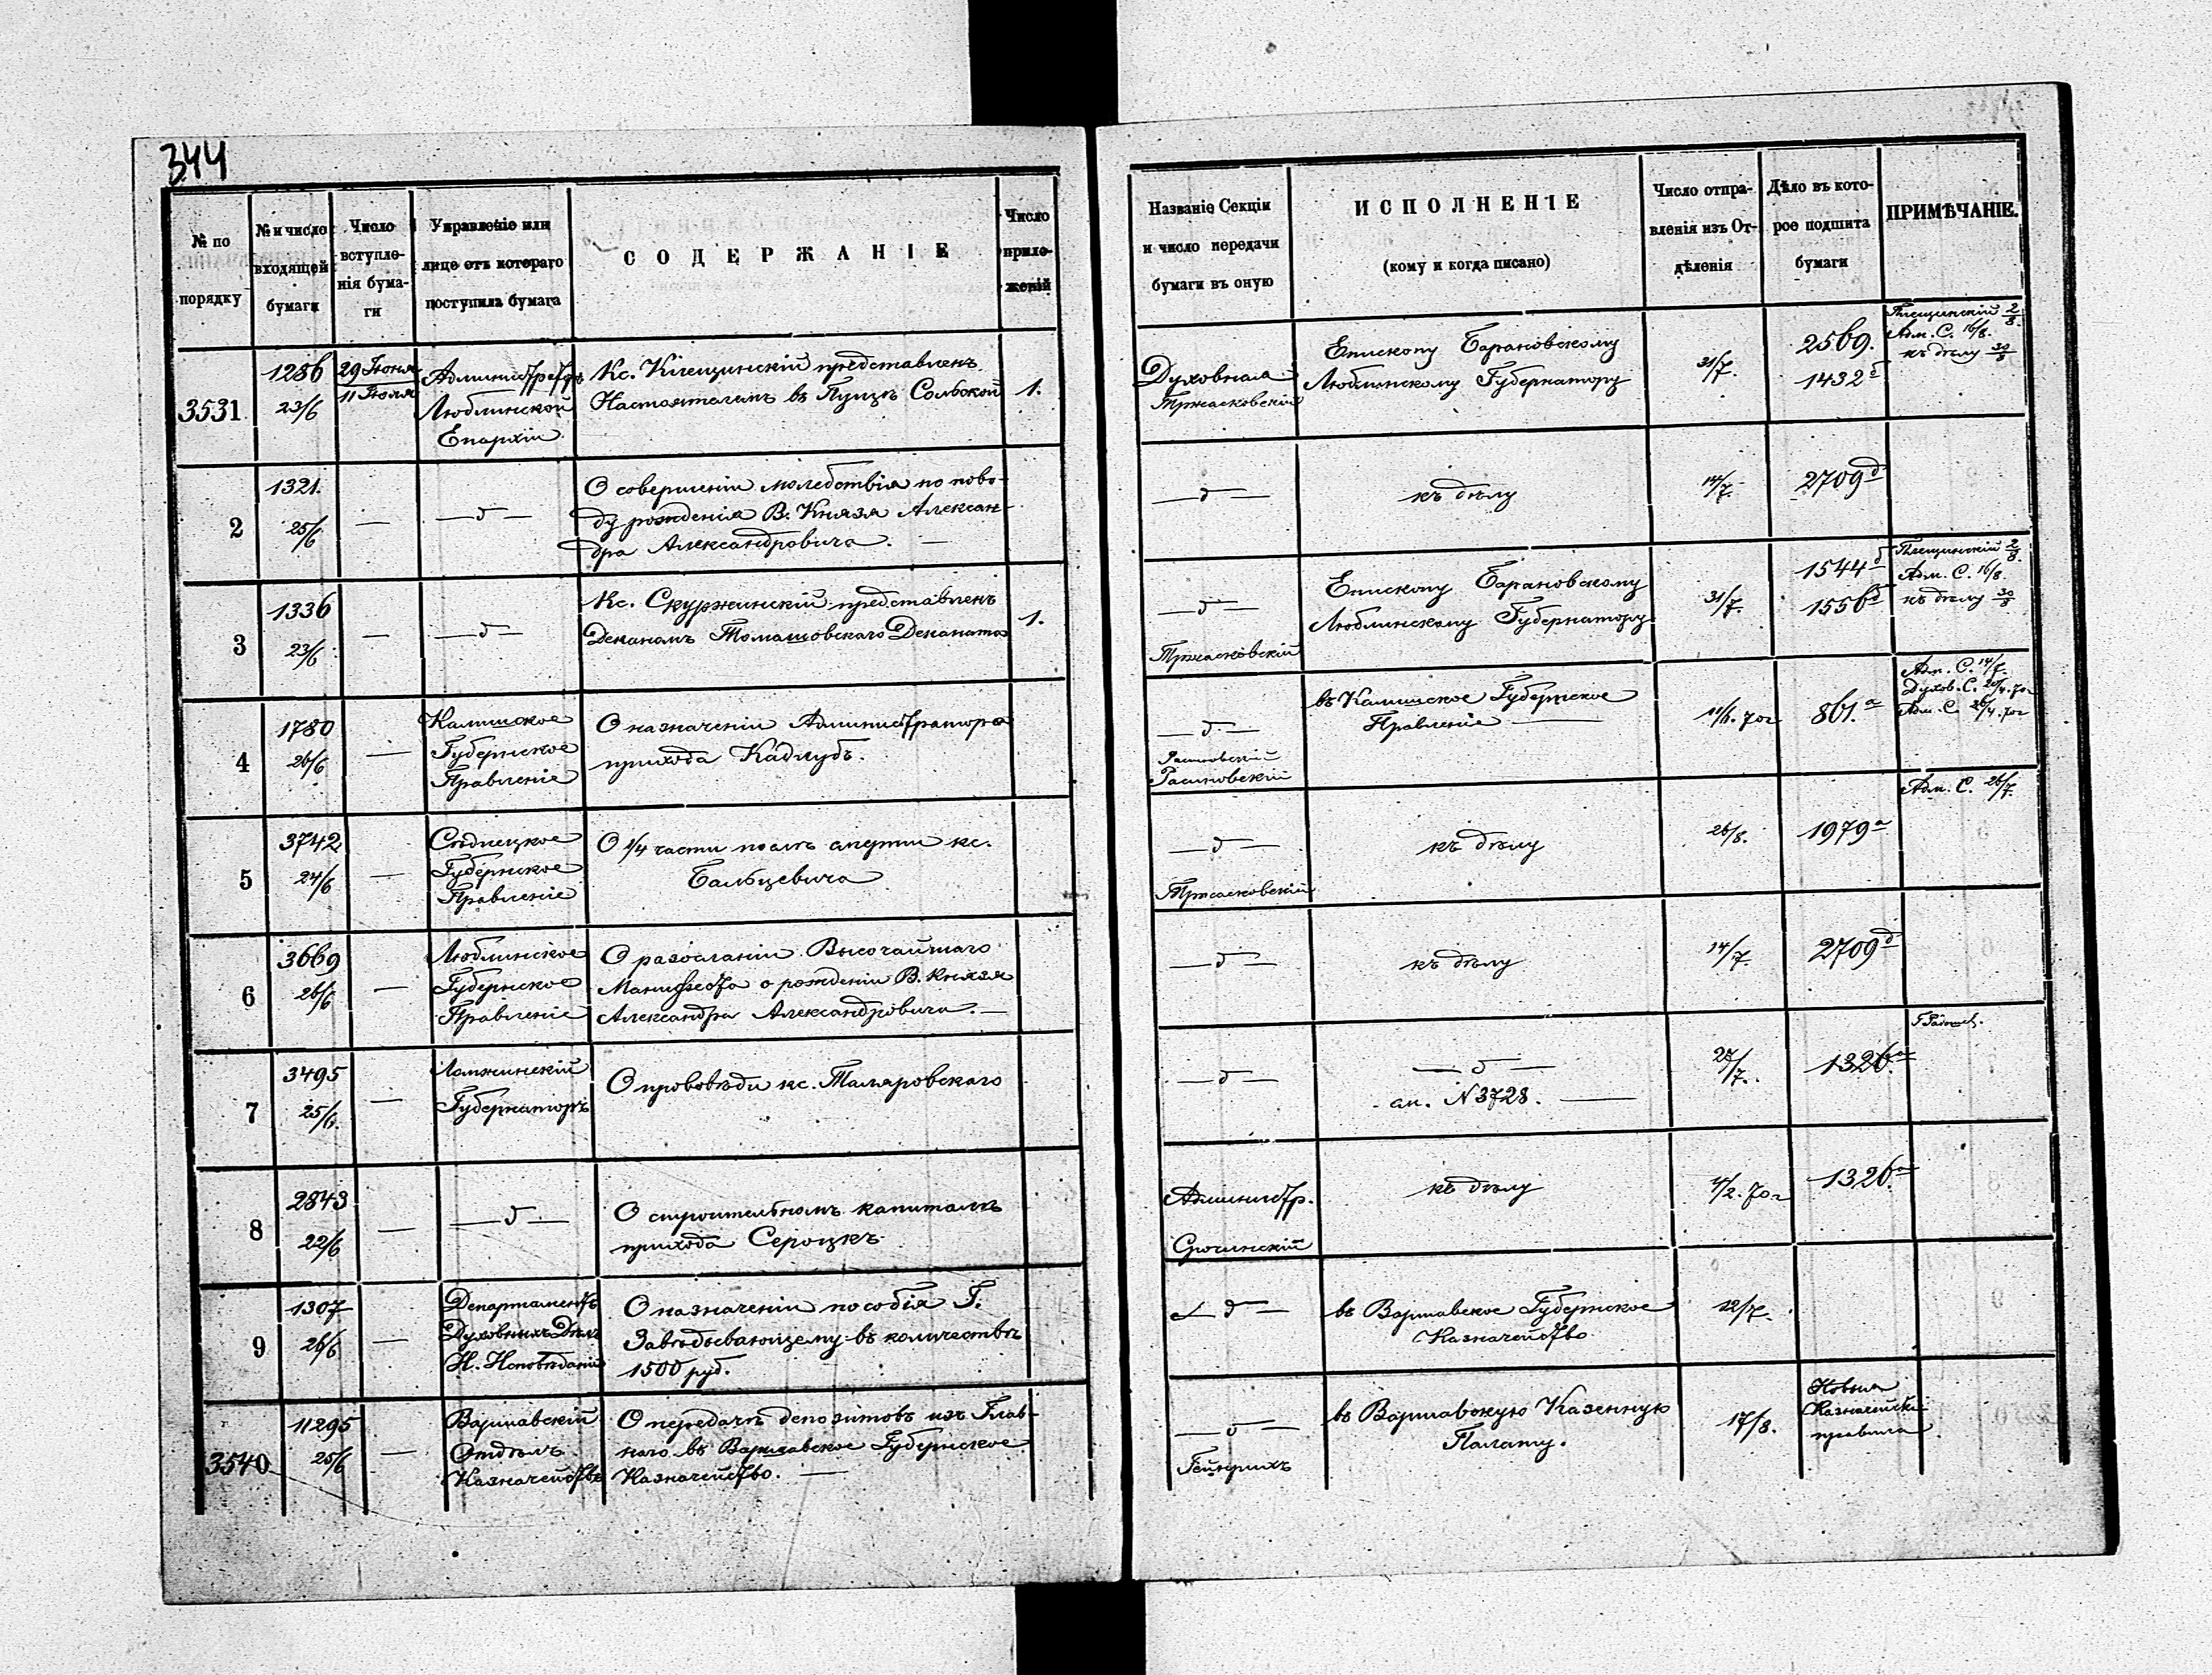 344
№ по
порядку
№ и число
входящей
бумаги
Число
вступле-
нія бума-
ги
Управленіе или
лице отъ котораго
поступила бумага
СОДЕРЖАНІЕ
Число
прило-
женій
Названіе Секціи
и число передачи
бумаги въ оную
ИСПОЛНЕНІЕ
(кому и когда писано)
Число отпра-
вленія изъ От-
дѣленія
Дѣло въ кото-
рое подшита
бумаги
ПРИМѢЧАНІЕ.
3531
1286
23/6
29 Іюня
11 Іюля
Администраторъ
Люблинской
Епархіи
Кс. Клещинскій представленъ
Настоятелемъ въ
1.
Духовная
Тржасковскій
Епископу Барановскому
Люблинскому Губернатору
31/7.
2569.
1432 б
2/8.
Адм. С. 16/8.
къ дѣлу 30/8
2
1321.
25/6
—
— д —
О совершеніи молебствія по пово-
ду рожденія В. Князя Алексан-
дра Александровича. —
— д —
къ дѣлу
14/7.
2709 д
3
1336
23/6
—
— д —
Кс. Скуржинскій представленъ
Деканомъ Томашовскаго Деканата
1.
— д —
Тржасковскій
Епископу Барановскому
Люблинскому Губернатору
31/7.
1544 б
1556 д
2/8.
Адм. С. 16/8.
къ дѣлу 30/8
4
1780
26/6
—
Калишское
Губернское
Правленіе
О назначеніи Администратора
прихода Кадлубъ.
— д —
Расиновскій
Расиновскій
въ Калишское Губернское
Правленіе —
11/6. 70 г
861. а
Адм. С. 14/7.
Духов. С. 20/4. 70 г
Адм. С. 26/4. 70 г
5
3742
24/6
—
Сѣдлецкое
Губернское
Правленіе
О 1/4 части послѣ смерти кс.
Бальцевича
— д —
Тржасковскій
къ дѣлу
26/8.
1979 а
Адм. С. 26/7.
6
3669
26/6
—
Люблинское
Губернское
Правленіе
О разосланіи Высочайшаго
Манифеста о рожденіи В. Князя
Александра Александровича. —
— д —
къ дѣлу
14/7.
2709 д
7
3495
25/6.
—
Ломжинскій
Губернаторъ
О проповѣди кс. Таляровскаго
— д —
— д —
ал. N 3728. —
28/7.
1326. а
8
2843
22/6
—
— д —
О строительномъ капиталѣ
прихода Сероцкъ
Администр.
къ дѣлу
4/2. 70 г
1326. а
9
1307
26/6
—
Департаментъ
Духовныхъ Дѣлъ
И. Исповѣданій
О назначеніи пособія Г.
Завѣдывающему въ количествѣ
1500 руб.
— д —
въ Варшавское Губернское
Казначейство
12/7.
3540
11295
25/6
—
Варшавскій
Отдѣлъ
Казначейства
О передачѣ депозитовъ изъ Глав-
наго въ Варшавское Губернское
Казначейство. —
— д —
Гейнрихъ
въ Варшавскую Казенную
Палату.
17/8.
Новыя
Казначейскія
правила